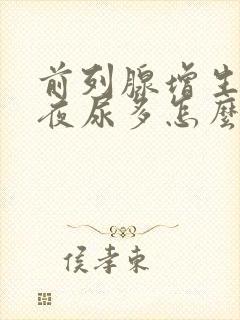 前列腺增生
夜尿多怎麼
侯孝東